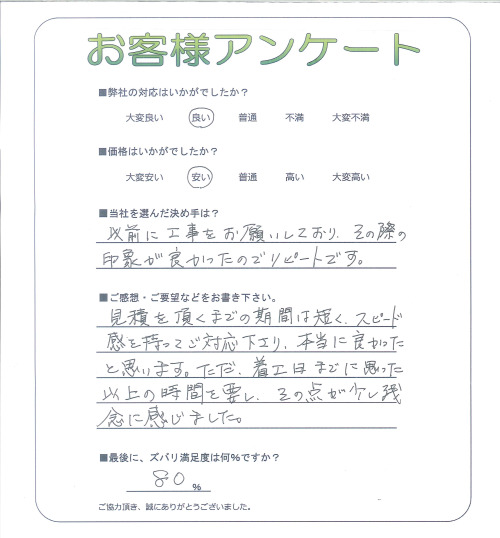 お客様アンケート
■弊社の対応はいかがでしたか？
大変良い 良い 普通 不満 大変不満
■価格はいかがでしたか？
大変安い 安い 普通 高い 大変高い
■当社を選んだ決め手は？
以前に工事をお願いしており、その際の
印象が良かったのでリピートです。
■ご感想・ご要望などをお書き下さい。
見積を頂くまでの期間は短く、スピード
感を持ってご対応下さり、本当に良かった
と思います。ただ、着工日までに思った
以上の時間を要し、その点が少し残
念に感じました。
■最後に、ズバリ満足度は何％ですか？
80 %
ご協力頂き、誠にありがとうございました。